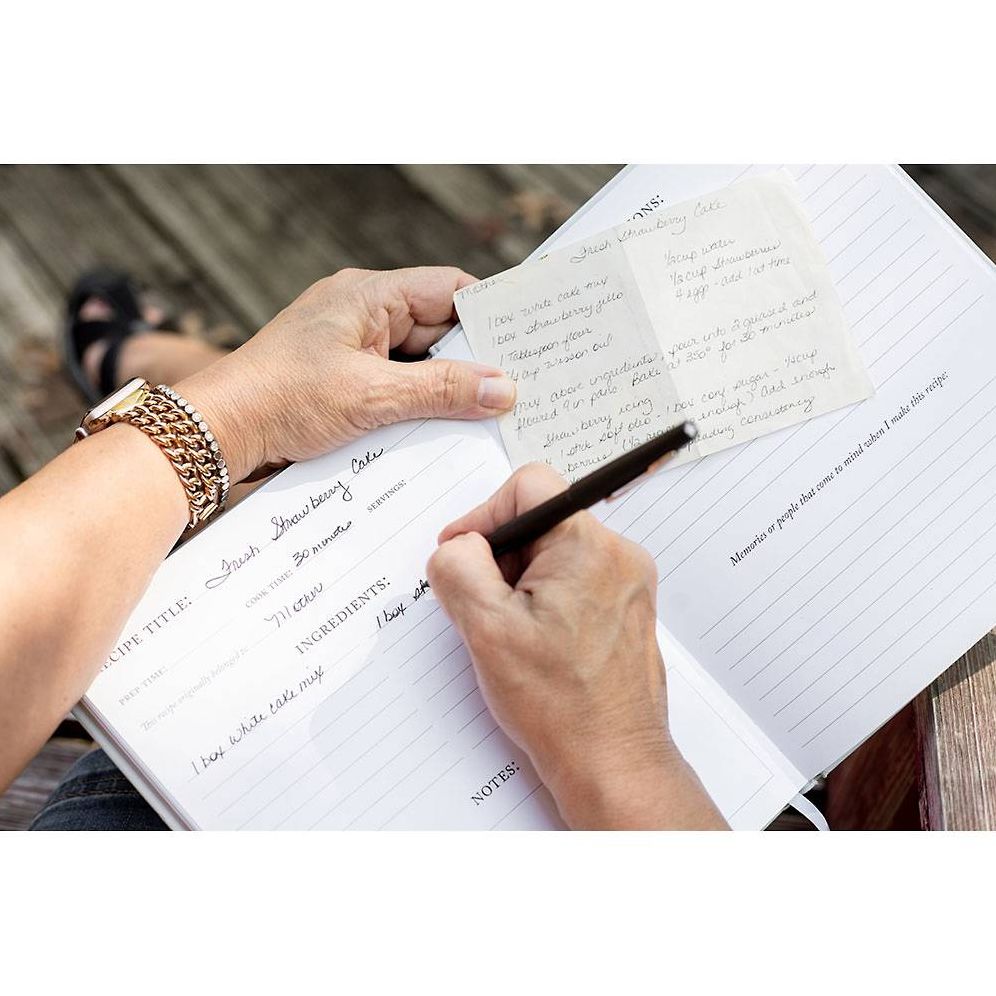 Fresh Strawberry Cake
Mother
1 box white cake mix
1 box strawberry jello
1 Tablespoon flour
cup wesson oil
½ cup water
½ cup strawberries
4 eggs - add 1 at time
Mix above ingredients, pour into 2 greased and
floured 9 in pans. Bake at 350° for 30 minutes
Strawberry icing
1 stick soft oleo - 1 box conf sugar - ½ cup
berries (½ enough) add enough
consistency
ONS:
Memories or people that come to mind when I make this recipe:
ECIPE TITLE: Fresh Strawberry Cake
PREP TIME: COOK TIME: 30 minutes SERVINGS:
This recipe originally belonged to: Mother
INGREDIENTS:
1 box white cake mix 1 box
NOTES: